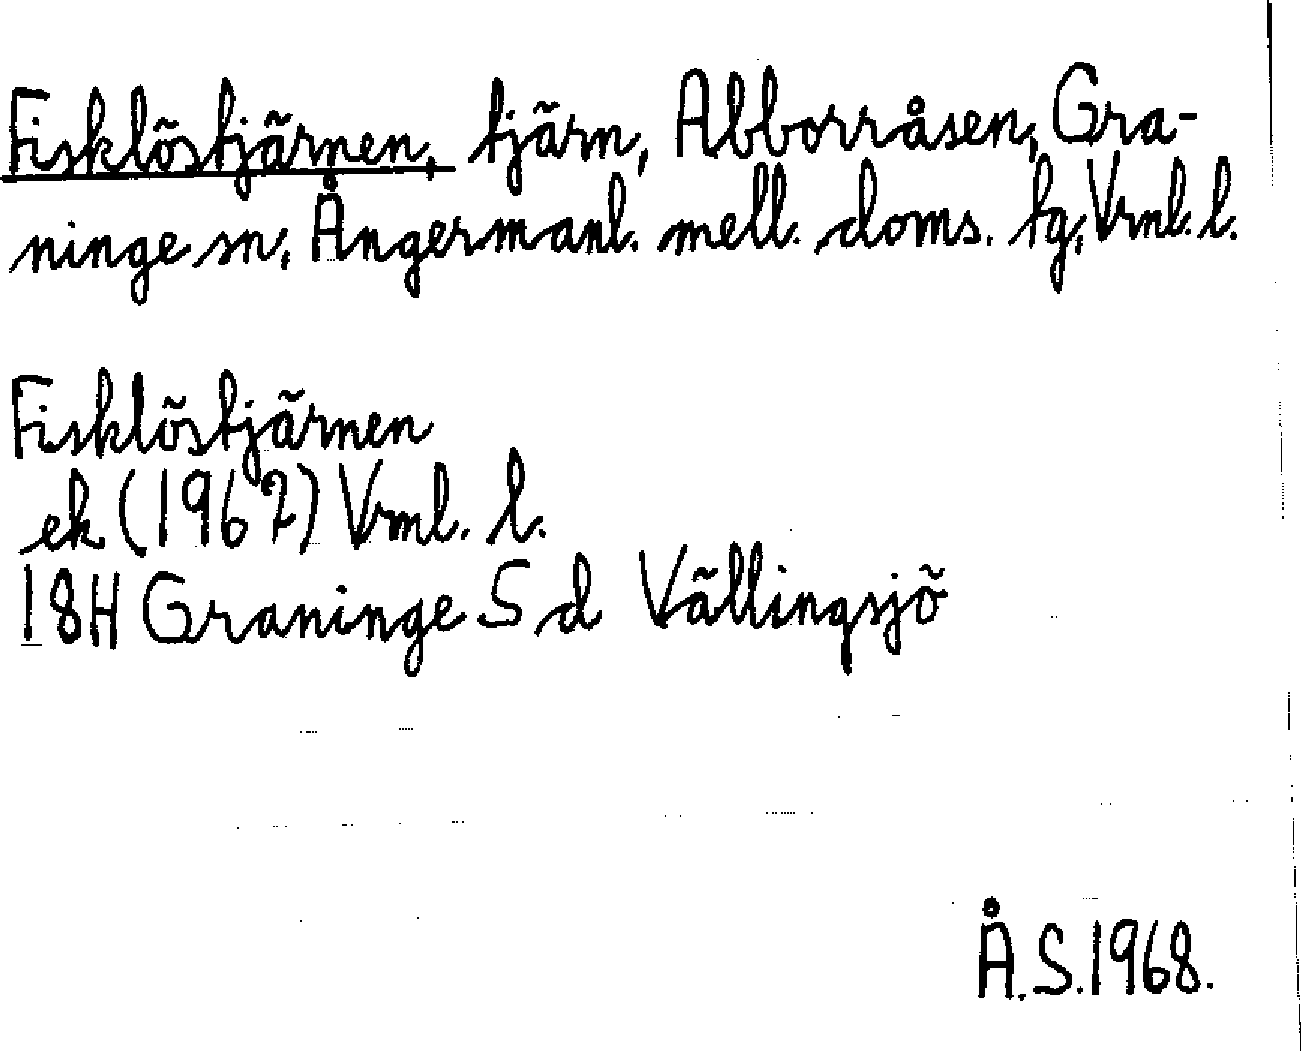 Fisklöstjärnen, tjärn, Abborråsen, Gra-
ninge sn, Ångermanl. mell. doms. tg, Vrml. l.
Fisklöstjärnen
ek (1967) Vrml. l.
18H Graninge S d Vällingsjö
Å.S. 1968.